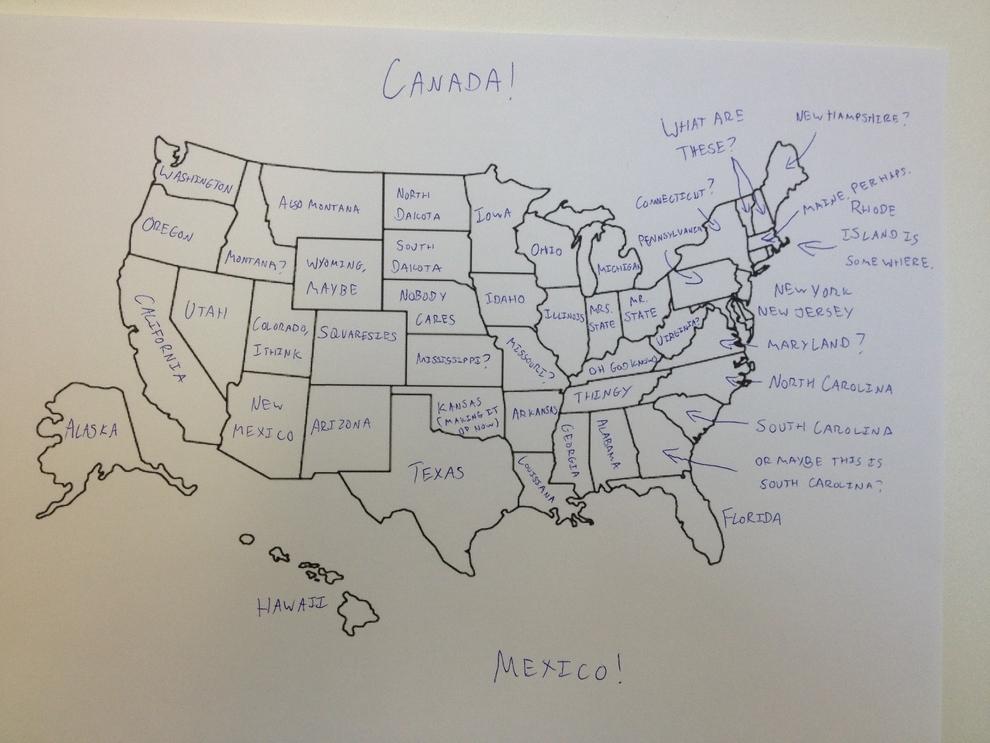 CANADA!
WHAT ARE
THESE?
NEW HAMPSHIRE?
CONNECTICUT?
MAINE, PERHAPS.
RHODE
ISLAND IS
SOMEWHERE.
PENNSYLVANIA
WASHINGTON
ALSO MONTANA
NORTH
DAKOTA
IOWA
OREGON
MONTANA?
WYOMING,
MAYBE
SOUTH
DAKOTA
OHIO
MICHIGAN
NEW YORK
NEW JERSEY
CALIFORNIA
UTAH
COLORADO,
I THINK
SQUARESIES
NOBODY
CARES
IDAHO
ILLINOIS
MRS.
STATE
MR.
STATE
VIRGINIA?
MARYLAND?
MISSISSIPPI?
MISSOURI?
OH GOD KNOWS
THINGY
NORTH CAROLINA
NEW
MEXICO
ARIZONA
KANSAS
(MAKING IT
UP NOW)
ARKANSAS
GEORGIA
ALABAMA
SOUTH CAROLINA
OR MAYBE THIS IS
SOUTH CAROLINA?
ALASKA
TEXAS
LOUISIANA
FLORIDA
HAWAII
MEXICO!